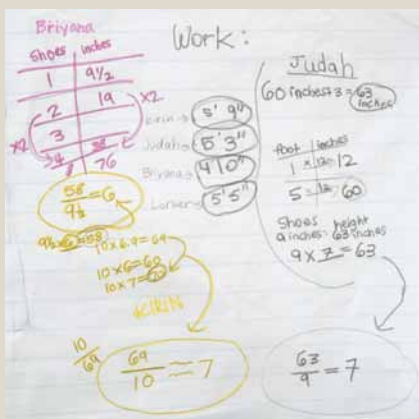 Briyana
Work:
shoes | inches
1 | 9½
2 | 19 x2
x2 3 | 38
4 | 76
58/9½ = 6
9½ x 6 = 58
10 x 6.9 = 69
10 x 6 = 60
10 x 7 = 70
KIRIN
10/69
69/10 ≈ 7
Kirin → 5' 9"
Judah → 5' 3"
Briyana → 4' 10"
5' 5"
Judah
60 inches + 3 = 63 inches
foot | inches
1 x 12 = 12
5 x 12 = 60
shoes height
9 inches : 63 inches
9 x 7 = 63
63/9 = 7